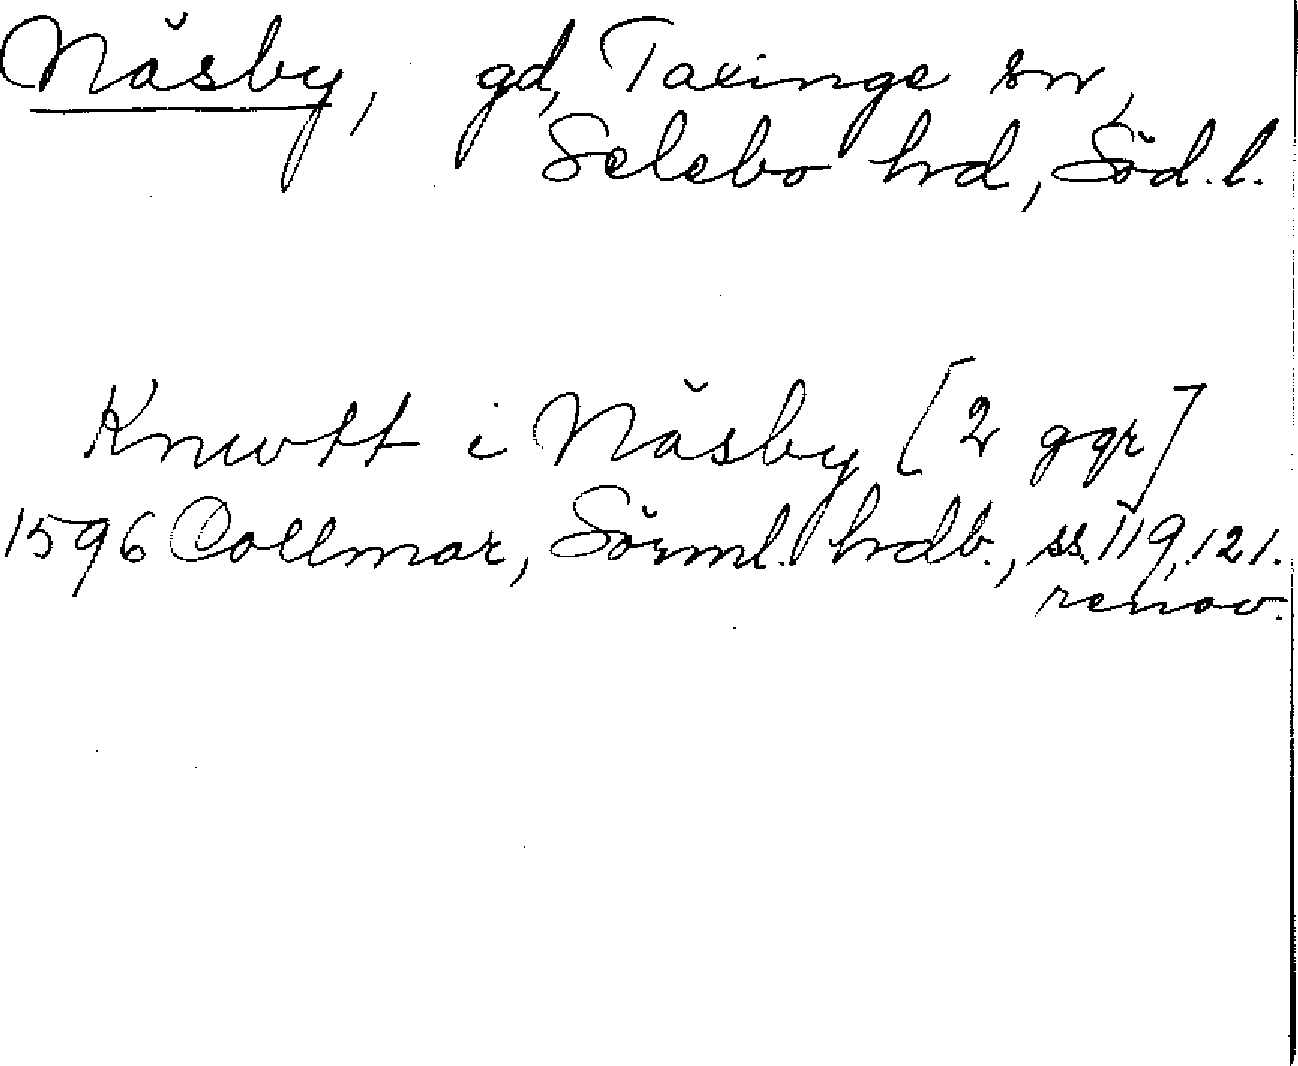 Näsby, gd, Taxinge sn,
Selebo hd, Söd. l.
Knwtt i Näsby [2 ggr]
1596 Collmar, Sörml. hdb., ss. 119, 121.
renov.